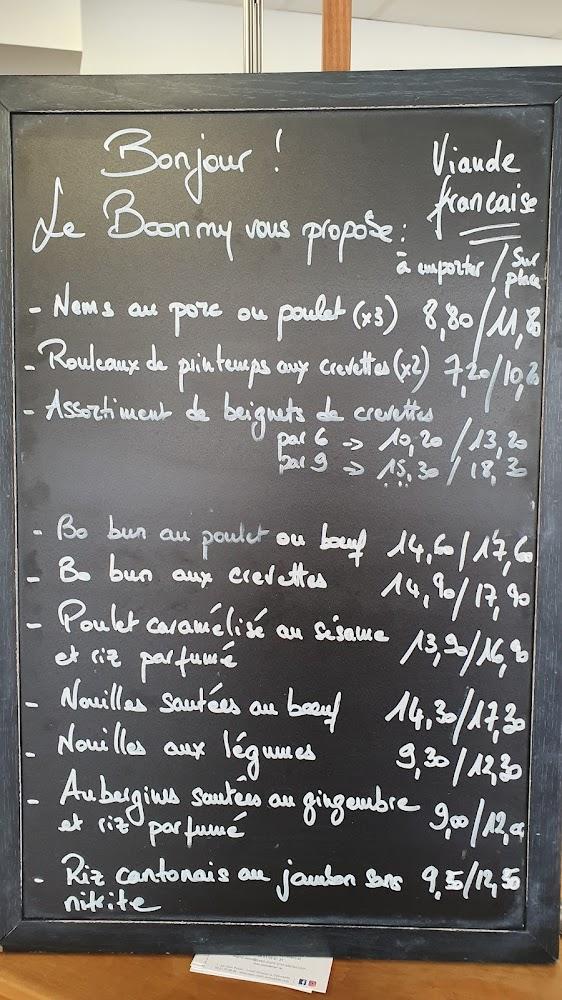 Bonjour !
Viande
francaise
Le Boonmy vous propose :
à emporter / Sur
place
- Nems au porc ou poulet (x3) 8,80/11,80
- Rouleaux de printemps aux crevettes (x2) 7,20/10,20
- Assortiment de beignets de crevettes
par 6 → 10,20 / 13,20
par 9 → 15,30 / 18,30
- Bo bun au poulet ou boeuf 14,60/17,60
- Bo bun aux crevettes 14,90/17,90
- Poulet caramélisé au sésame
et riz parfumé 13,90/16,90
- Nouilles sautées au boeuf 14,30/17,30
- Nouilles aux légumes 9,30/12,30
- Aubergines sautées au gingembre
et riz parfumé 9,00/12,00
- Riz cantonais au jambon sans 9,50/12,50
nitrite